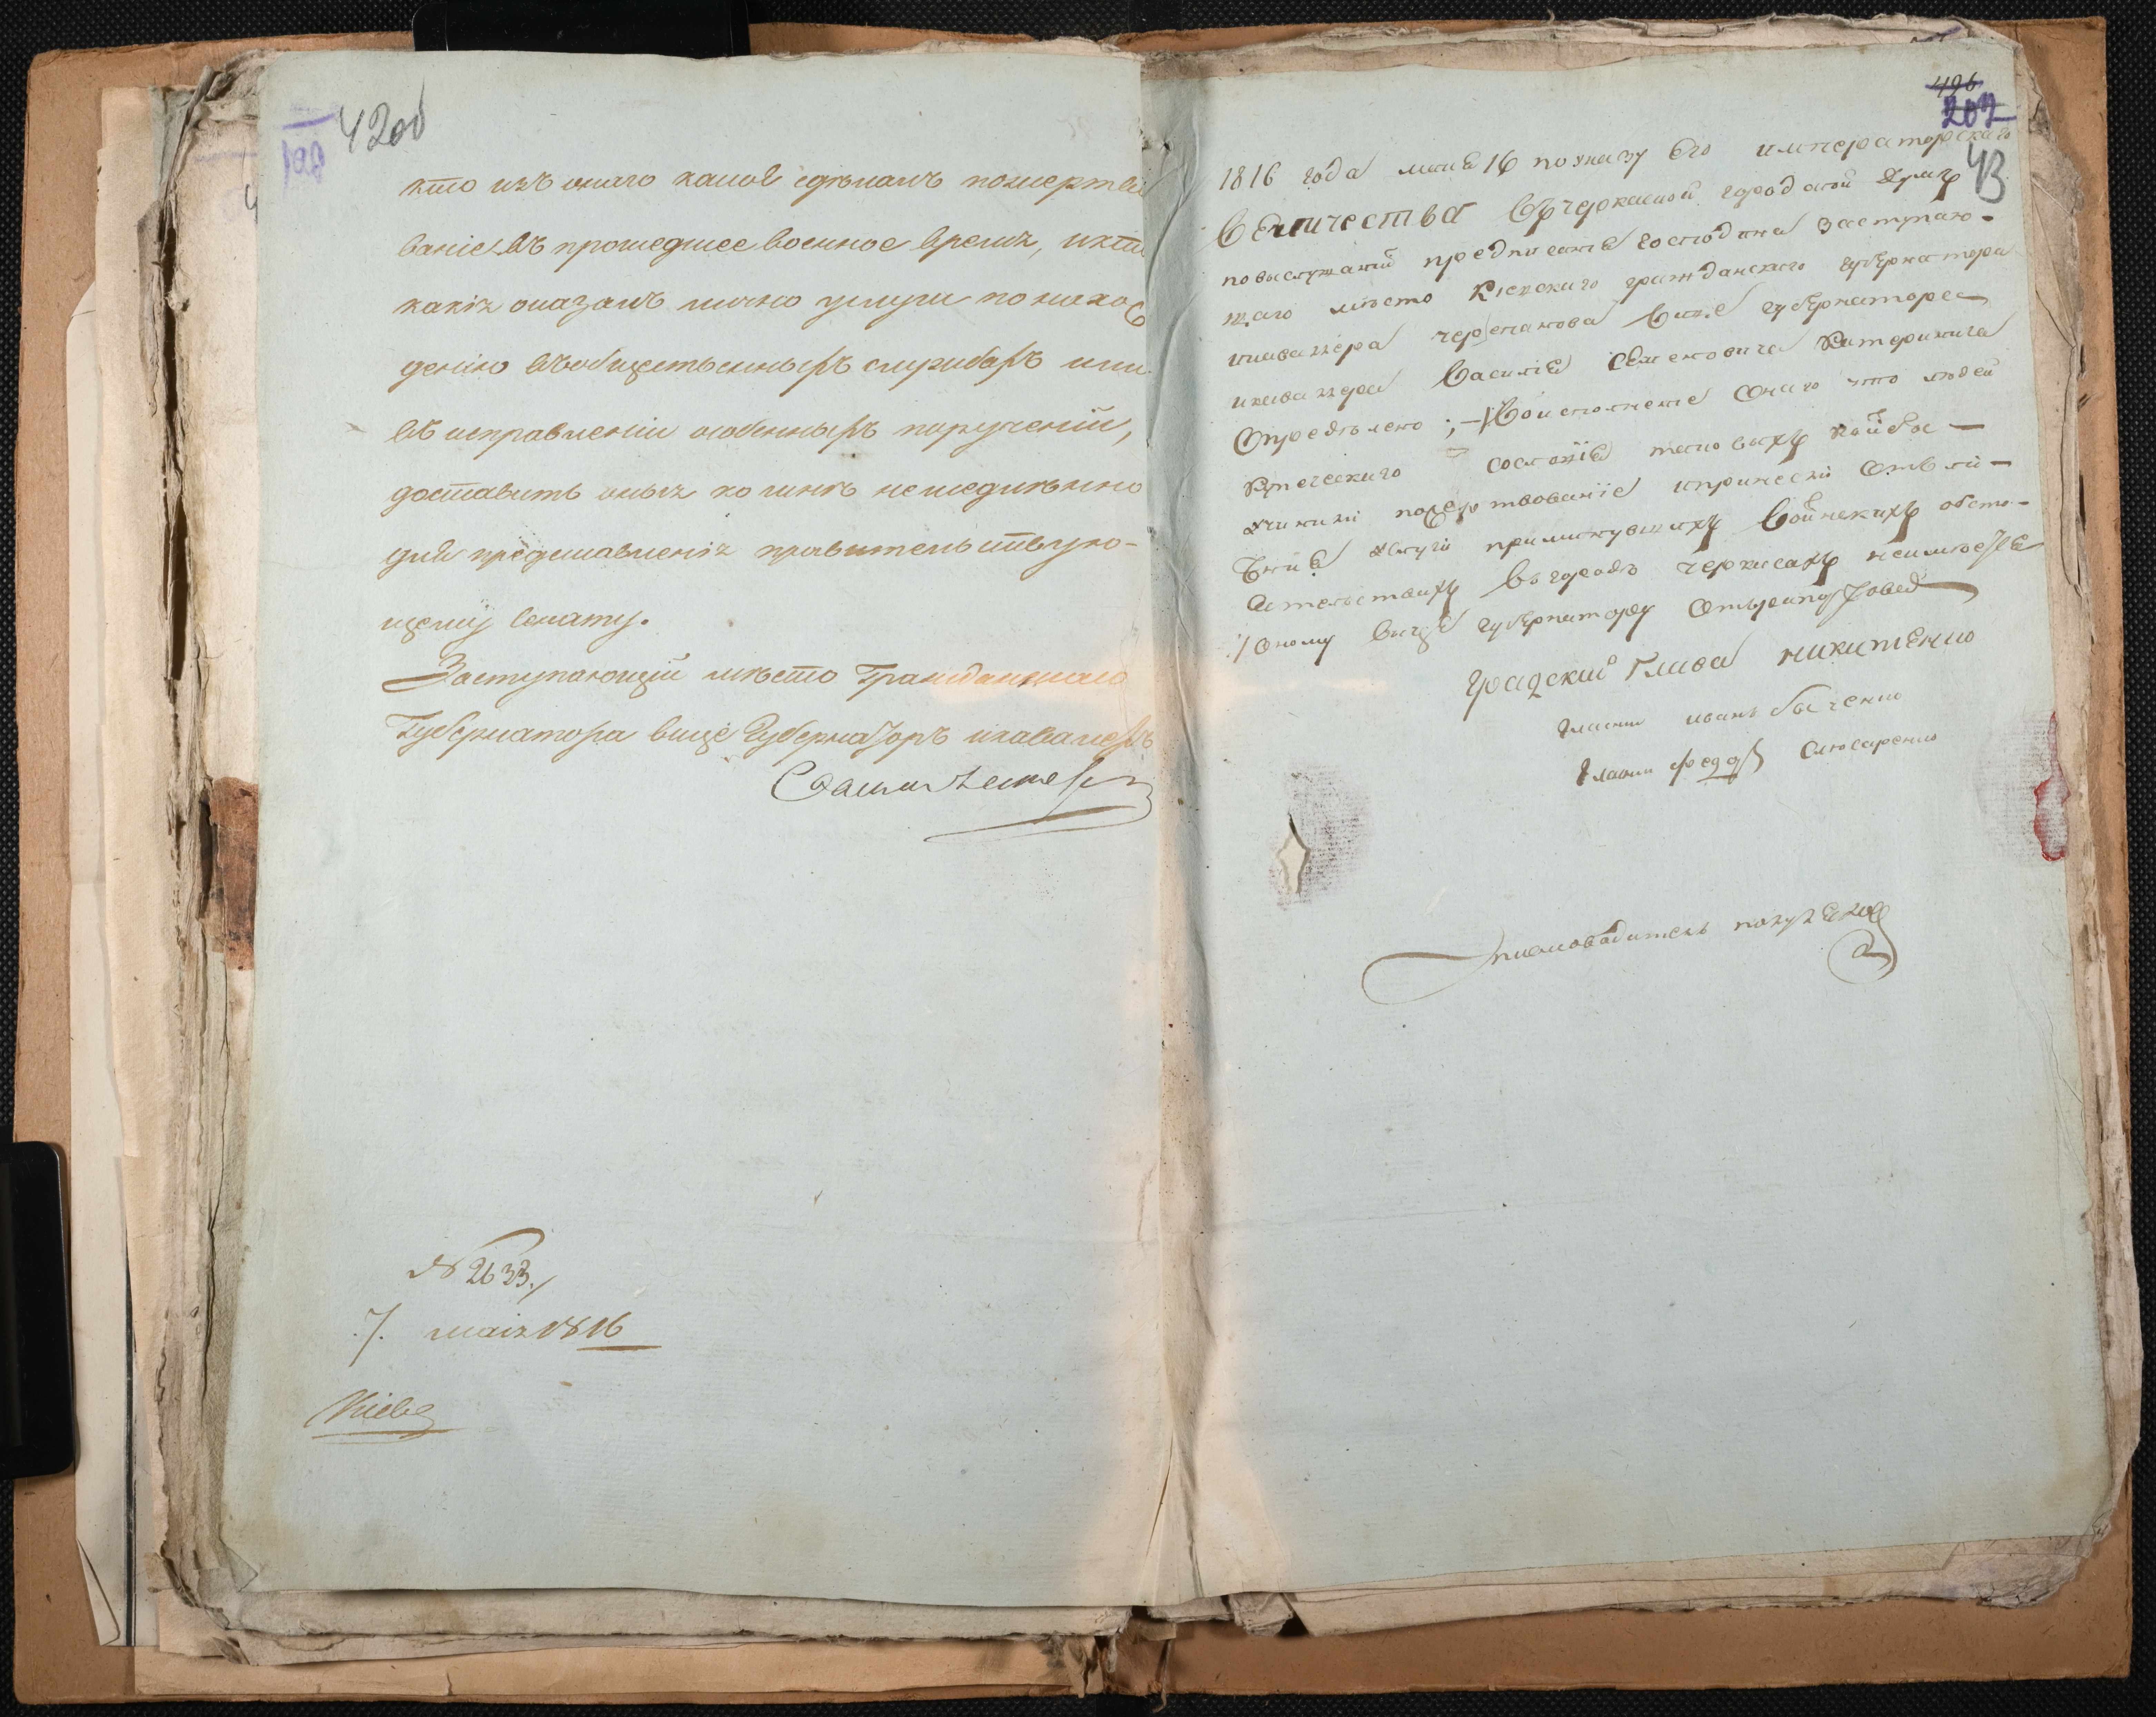 42об
кто изъ онаго какое сдѣлалъ пожертво
ваніе въ прошедшее военное время, и кто
какія оказалъ лично услуги по нахо
жденію въ общественныхъ службахъ или
въ исправленіи особенныхъ порученій,
доставить оныя ко мнѣ немедлѣнно
для представленія правительствую-
щему Сенату.
Заступающій мѣсто Гражданскаго
Губернатора вице Губернаторъ и кавалеръ
№ 2633.
7. маія 1816
Кіевъ
496
202
43
1816 года маія 16 по указу Его императорскаго
Величества въ черкаской городской думѣ
по выслушаній предписаніе господина заступаю-
щаго мѣсто Киевскаго гражданскаго губернатора
икавалера черепанова вице губернатора
икавалера Василіе Семеновича
Опредѣлено ; — Во исполнение Оного что людей
купеческаго состоянія таковыхъ кой бы —
учинили пожертвованіе и принесли
услуги приминувшихъ Войнскихъ обсто-
ятельствахъ въ городѣ черкасахъ неимѣется
Оному вице губернатору Отърапортовать
Градский Глава никитенко
Гласни иванъ баченко
Гласни Федоръ Слюсаренко
писмоводитель